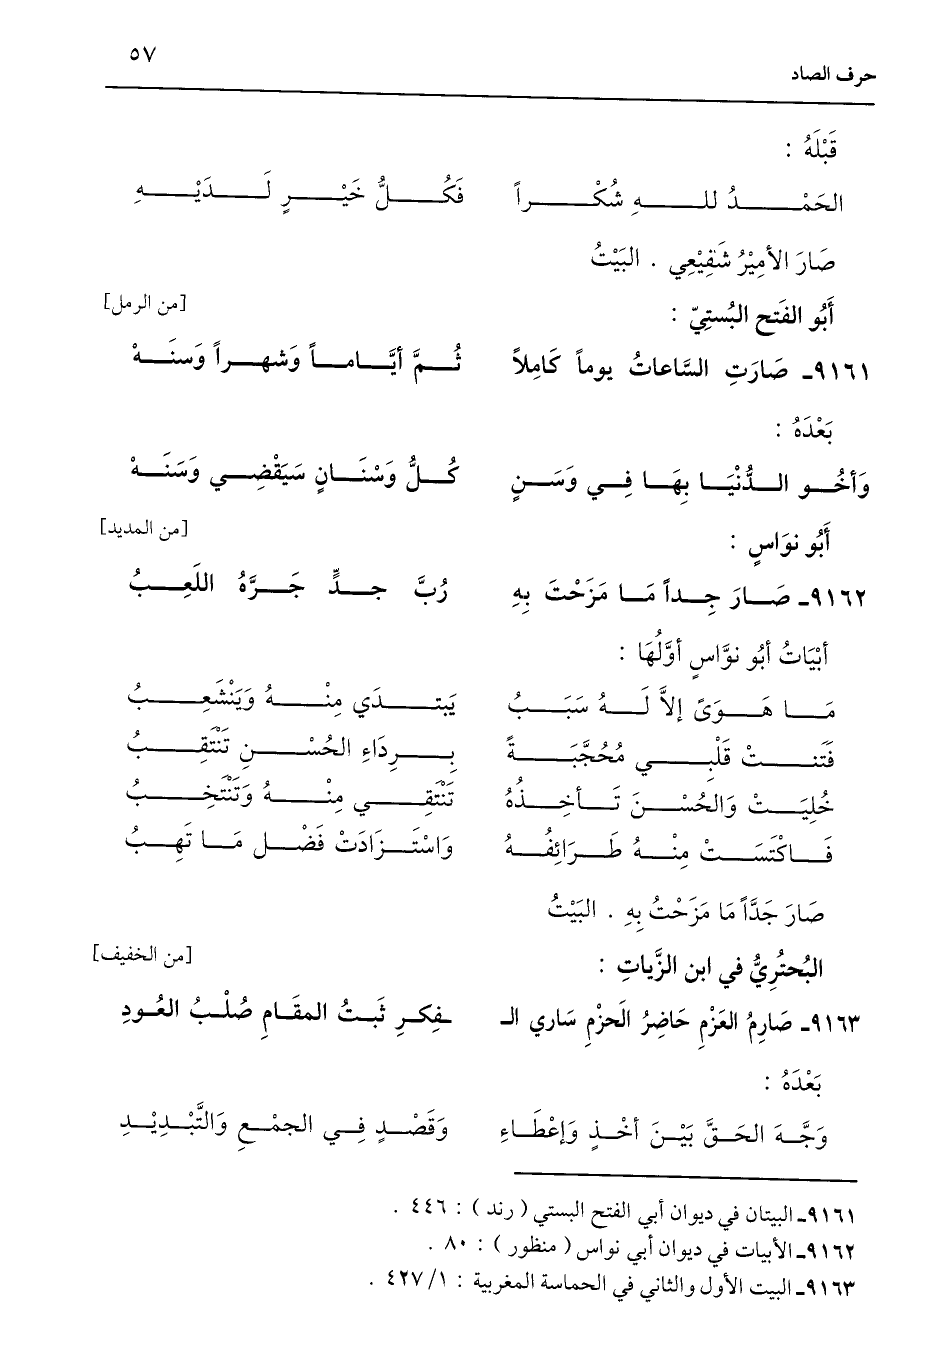 ٥٧
حرف الصاد
قَبْلَهُ :
الحَمْدُ للهِ شُكْراً فَكُلُّ خَيْرٍ لَدَيْهِ
صَارَ الأمِيْرُ شَفِيْعِي . البَيْتُ
أَبُو الفَتح البُستِيّ : [من الرمل]
٩١٦١ـ صَارَتِ السَّاعاتُ يوماً كَامِلاً ثُمَّ أيَّاماً وَشهراً وَسنَهْ
بَعْدَهُ :
وَأخُو الدُّنْيَا بِهَا فِي وَسَنٍ كُلُّ وَسْنَانٍ سَيَقْضِي وَسَنَهْ
أَبُو نوَاسٍ : [من المديد]
٩١٦٢ـ صَارَ جِداً مَا مَزَحْتَ بِهِ رُبَّ جدٍّ جَرَّهُ اللَعِبُ
أبْيَاتُ أبُو نوَّاسٍ أوَّلُهَا :
مَا هَوَىً إلاَّ لَهُ سَبَبُ يَبتدَي مِنْهُ وَيَنْشَعِبُ
فَتَنتْ قَلْبِي مُحُجَّبَةً بِرِدَاءِ الحُسْنِ تَنْتَقِبُ
خُلِيَتْ وَالحُسْنَ تَأخِذُهُ تَنْتَقِي مِنْهُ وَتَنْتَخِبُ
فَاكْتَسَتْ مِنْهُ طَرَائِفُهُ وَاسْتَزَادَتْ فَضْل مَا تَهِبُ
صَارَ جَدَّاً مَا مَزَحْتُ بِهِ . البَيْتُ
البُحتُرِيُّ في ابن الزَّياتِ : [من الخفيف]
٩١٦٣ـ صَارِمُ العَزْمِ حَاضِرُ الَحزْمِ سَاري الـ ـفِكرِ ثَبتُ المقَامِ صُلْبُ العُودِ
بَعْدَهُ :
وَجَّهَ الحَقَّ بَيْنَ أخْذٍ وَإعْطَاءِ وَقَصْدٍ فِي الجمْعِ وَالتَّبْدِيْدِ
٩١٦١ـ البيتان في ديوان أبي الفتح البستي ( رند ) : ٤٤٦ .
٩١٦٢ـ الأبيات في ديوان أبي نواس ( منظور ) : ٨٠ .
٩١٦٣ـ البيت الأول والثاني في الحماسة المغربية : ١/ ٤٢٧ .